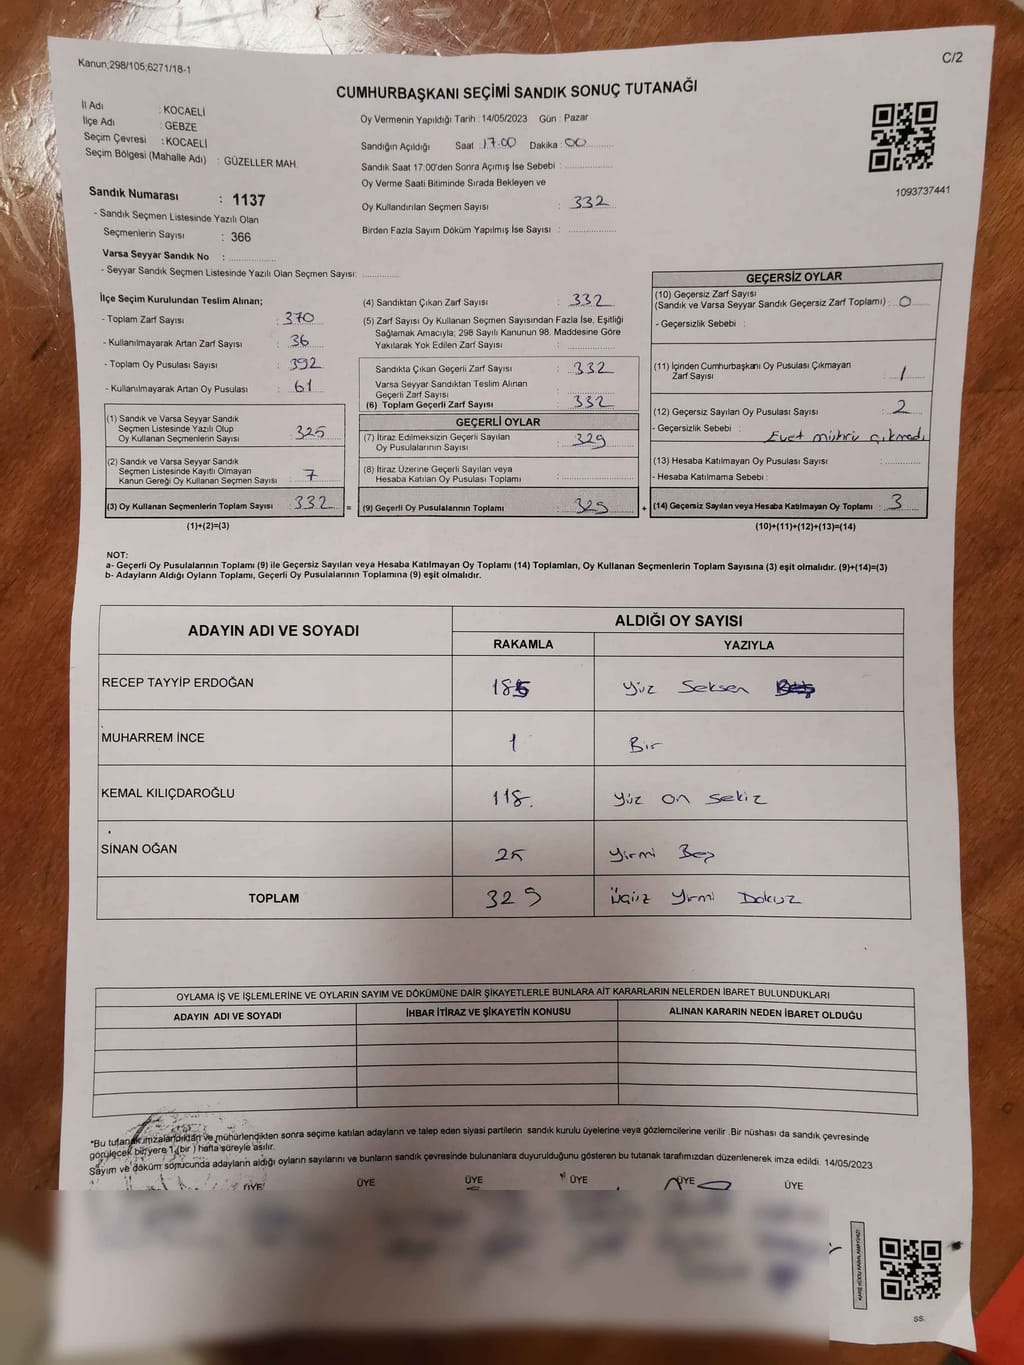 Kanun;298/105,6271/18-1
C/2
CUMHURBAŞKANI SEÇİMİ SANDIK SONUÇ TUTANAĞI
İl Adı : KOCAELİ
İlçe Adı : GEBZE
Seçim Çevresi : KOCAELİ
Seçim Bölgesi (Mahalle Adı) : GÜZELLER MAH.
Oy Vermenin Yapıldığı Tarih : 14/05/2023 Gün : Pazar
Sandığın Açıldığı Saat : 17.00 Dakika : 00
Sandık Saat 17:00'den Sonra Açımış İse Sebebi :
Oy Verme Saati Bitiminde Sırada Bekleyen ve
Oy Kullandırılan Seçmen Sayısı : 332
Birden Fazla Sayım Döküm Yapılmış İse Sayısı :
1093737441
Sandık Numarası : 1137
- Sandık Seçmen Listesinde Yazılı Olan
Seçmenlerin Sayısı : 366
Varsa Seyyar Sandık No :
- Seyyar Sandık Seçmen Listesinde Yazılı Olan Seçmen Sayısı:
İlçe Seçim Kurulundan Teslim Alınan;
- Toplam Zarf Sayısı : 370
- Kullanılmayarak Artan Zarf Sayısı : 36
- Toplam Oy Pusulası Sayısı : 392
- Kullanılmayarak Artan Oy Pusulası : 61
(1) Sandık ve Varsa Seyyar Sandık
Seçmen Listesinde Yazılı Olup
Oy Kullanan Seçmenlerin Sayısı : 325
(2) Sandık ve Varsa Seyyar Sandık
Seçmen Listesinde Kayıtlı Olmayan
Kanun Gereği Oy Kullanan Seçmen Sayısı : 7
(3) Oy Kullanan Seçmenlerin Toplam Sayısı : 332 =
(1)+(2)=(3)
(4) Sandıktan Çıkan Zarf Sayısı : 332
(5) Zarf Sayısı Oy Kullanan Seçmen Sayısından Fazla İse, Eşitliği
Sağlamak Amacıyla; 298 Sayılı Kanunun 98. Maddesine Göre
Yakılarak Yok Edilen Zarf Sayısı :
Sandıkta Çıkan Geçerli Zarf Sayısı : 332
Varsa Seyyar Sandıktan Teslim Alınan
Geçerli Zarf Sayısı :
(6) Toplam Geçerli Zarf Sayısı : 332
GEÇERLİ OYLAR
(7) İtiraz Edilmeksizin Geçerli Sayılan
Oy Pusulalarının Sayısı : 329
(8) İtiraz Üzerine Geçerli Sayılan veya
Hesaba Katılan Oy Pusulası Toplamı :
(9) Geçerli Oy Pusulalarının Toplamı : 329 +
GEÇERSİZ OYLAR
(10) Geçersiz Zarf Sayısı
(Sandık ve Varsa Seyyar Sandık Geçersiz Zarf Toplamı) : 0
- Geçersizlik Sebebi :
(11) İçinden Cumhurbaşkanı Oy Pusulası Çıkmayan
Zarf Sayısı : 1
(12) Geçersiz Sayılan Oy Pusulası Sayısı : 2
- Geçersizlik Sebebi : Evet mührü çıkmadı
(13) Hesaba Katılmayan Oy Pusulası Sayısı :
- Hesaba Katılmama Sebebi :
(14) Geçersiz Sayılan veya Hesaba Katılmayan Oy Toplamı : 3
(10)+(11)+(12)+(13)=(14)
NOT:
a- Geçerli Oy Pusulalarının Toplamı (9) ile Geçersiz Sayılan veya Hesaba Katılmayan Oy Toplamı (14) Toplamları, Oy Kullanan Seçmenlerin Toplam Sayısına (3) eşit olmalıdır. (9)+(14)=(3)
b- Adayların Aldığı Oyların Toplamı, Geçerli Oy Pusulalarının Toplamına (9) eşit olmalıdır.
ADAYIN ADI VE SOYADI
ALDIĞI OY SAYISI
RAKAMLA YAZIYLA
RECEP TAYYİP ERDOĞAN 185 Yüz Seksen Beş
MUHARREM İNCE 1 Bir
KEMAL KILIÇDAROĞLU 118. Yüz on sekiz
SİNAN OĞAN 25 Yirmi Beş
TOPLAM 329 Üçyüz Yirmi Dokuz
OYLAMA İŞ VE İŞLEMLERİNE VE OYLARIN SAYIM VE DÖKÜMÜNE DAİR ŞİKAYETLERLE BUNLARA AİT KARARLARIN NELERDEN İBARET BULUNDUKLARI
ADAYIN ADI VE SOYADI İHBAR İTİRAZ VE ŞİKAYETİN KONUSU ALINAN KARARIN NEDEN İBARET OLDUĞU
*Bu tutanak imzalandıktan ve mühürlendikten sonra seçime katılan adayların ve talep eden siyasi partilerin sandık kurulu üyelerine veya gözlemcilerine verilir .Bir nüshası da sandık çevresinde
görülecek bir yere 1 (bir ) hafta süreyle asılır.
Sayım ve döküm sonucunda adayların aldığı oyların sayılarını ve bunların sandık çevresinde bulunanlara duyurulduğunu gösteren bu tutanak tarafımızdan düzenlenerek imza edildi. 14/05/2023
ÜYE ÜYE ÜYE ÜYE ÜYE ÜYE
KARE KODU KARALAMAYINIZ!
SS.